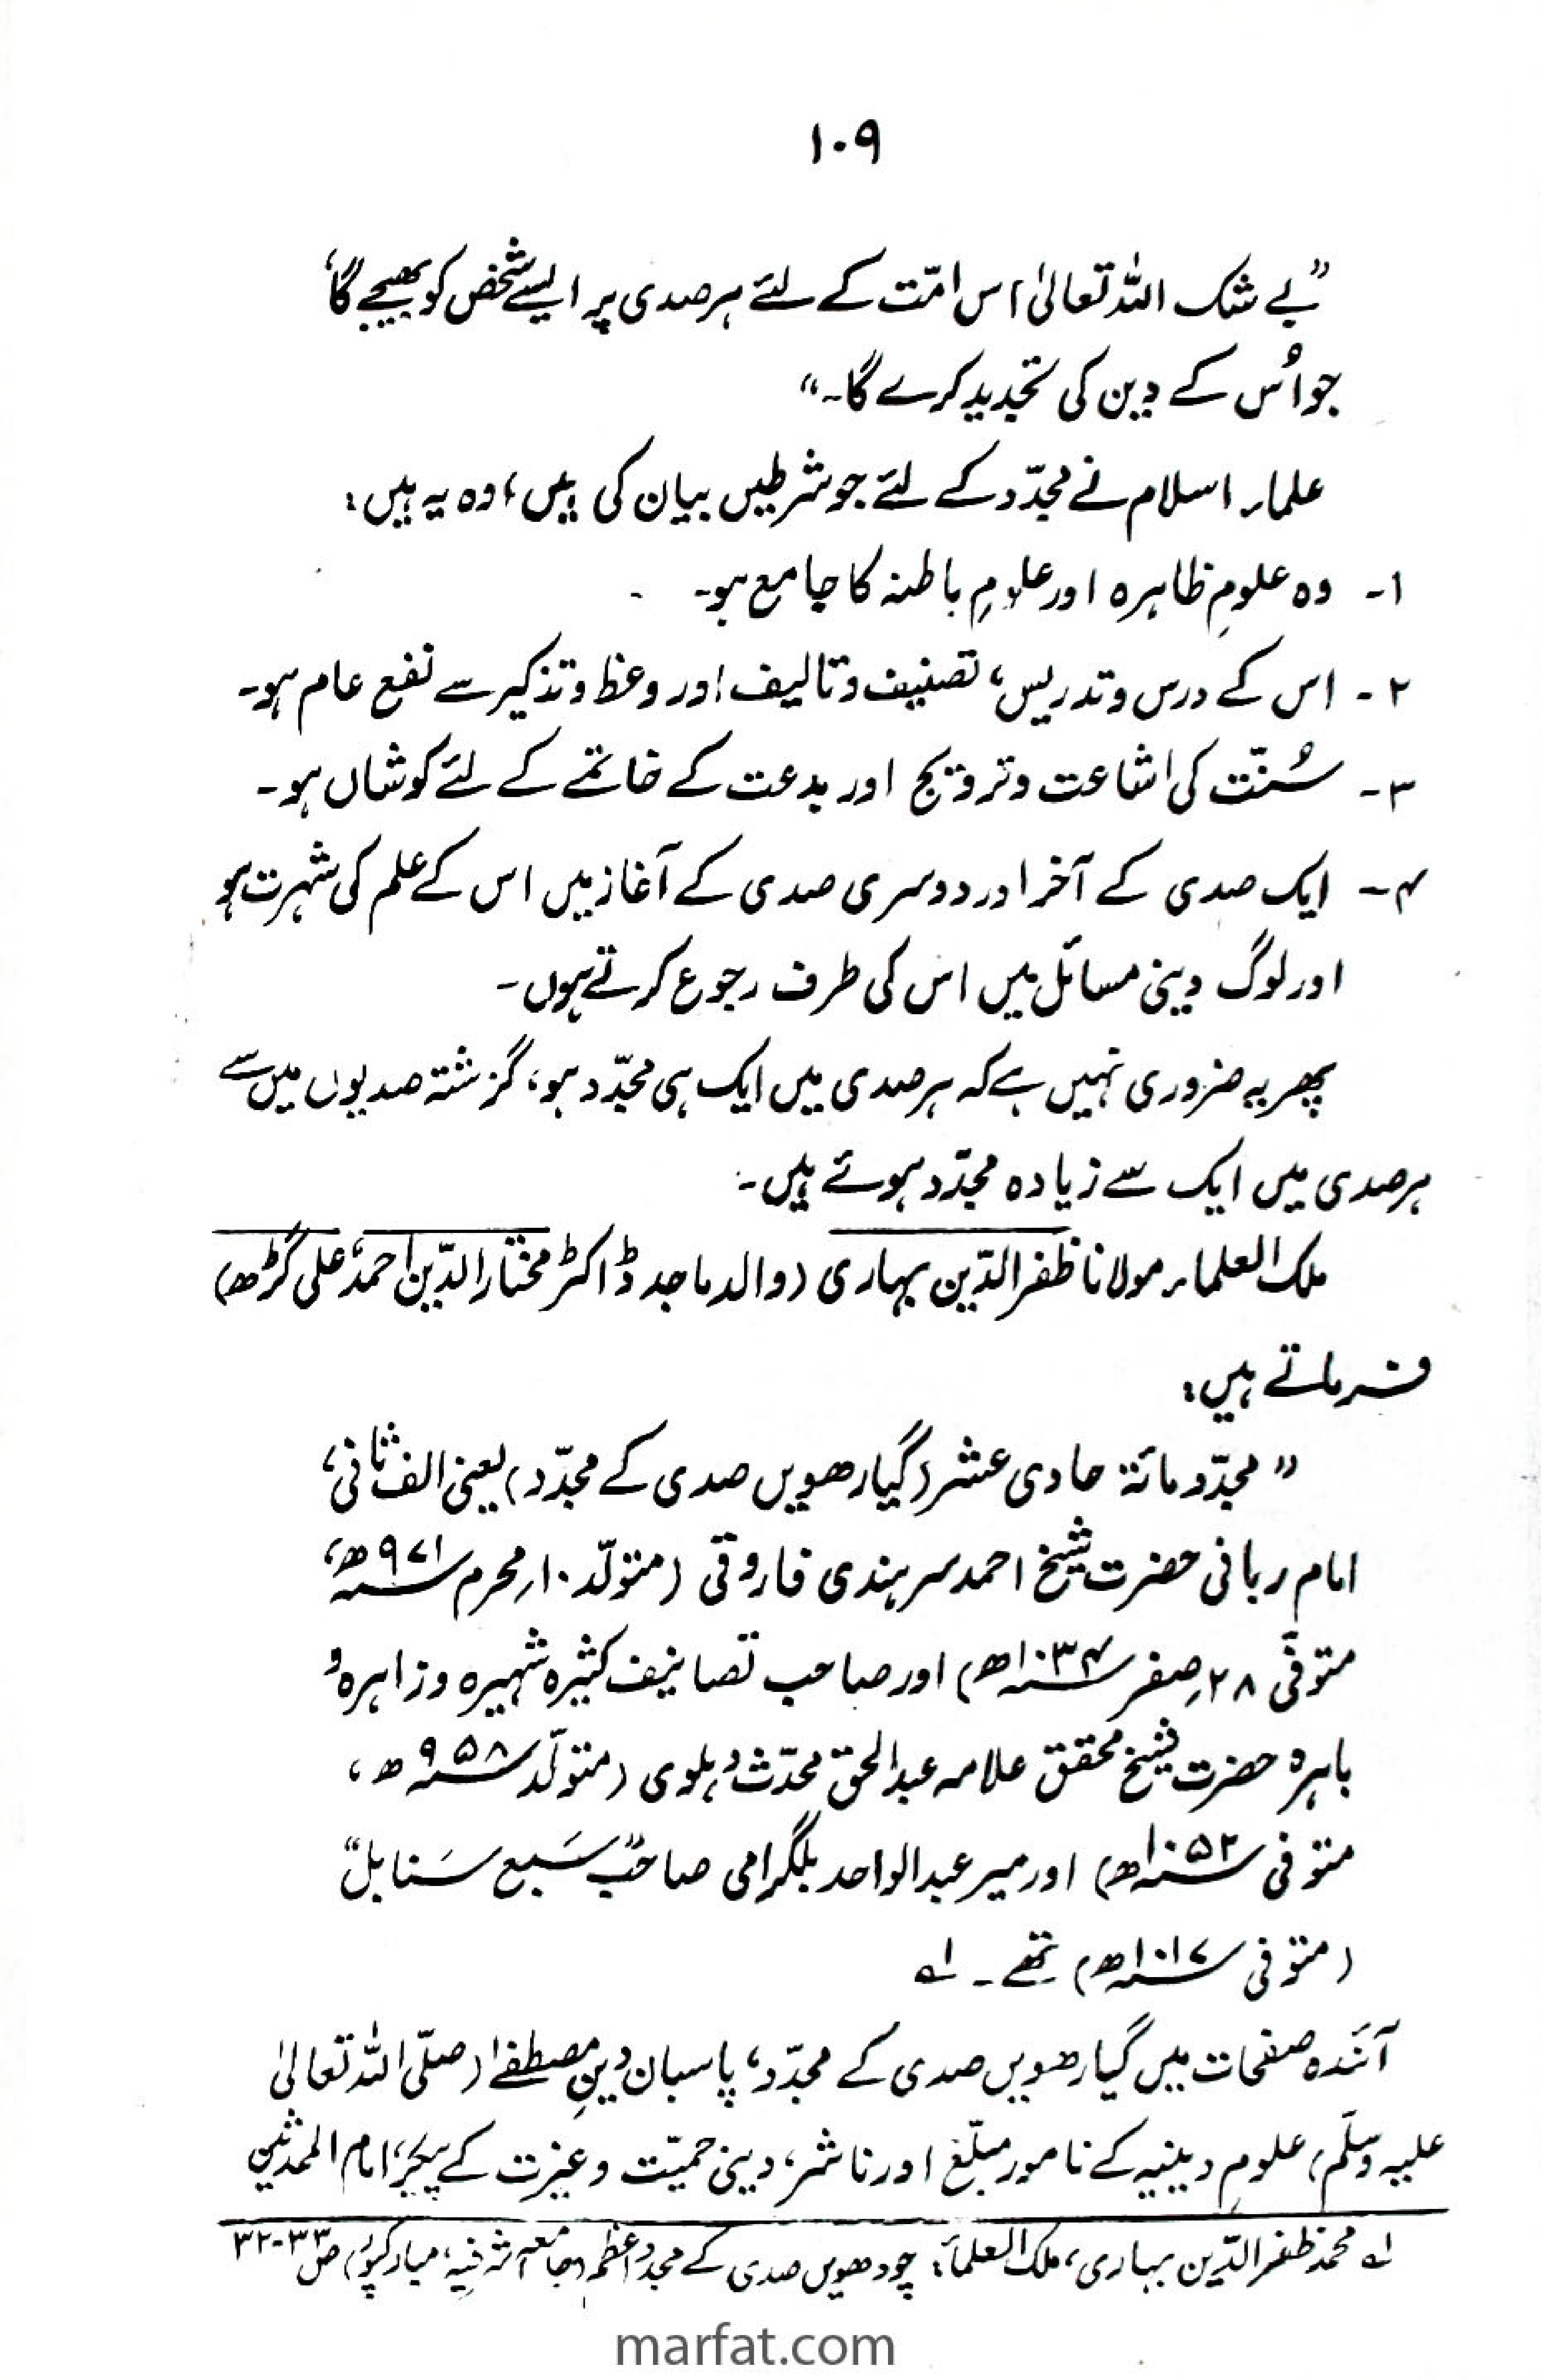 ۱۰۹
”بے شک اللہ تعالیٰ اس امّت کے لئے ہر صدی پر ایسے شخص کو بھیجے گا،
جو اُس کے دین کی تجدید کرے گا۔“
علماء اسلام نے مجدّد کے لئے جو شرطیں بیان کی ہیں، وہ یہ ہیں:
۱۔ وہ علومِ ظاہرہ اور علومِ باطنہ کا جامع ہو۔
۲۔ اس کے درس و تدریس، تصنیف و تالیف اور وعظ و تذکیر سے نفع عام ہو۔
۳۔ سُنّت کی اشاعت و ترویج اور بدعت کے خاتمے کے لئے کوشاں ہو۔
۴۔ ایک صدی کے آخر اور دوسری صدی کے آغاز میں اس کے علم کی شہرت ہو
اور لوگ دینی مسائل میں اس کی طرف رجوع کرتے ہوں۔
پھر یہ ضروری نہیں ہے کہ ہر صدی میں ایک ہی مجدّد ہو، گزشتہ صدیوں میں سے
ہر صدی میں ایک سے زیادہ مجدّد ہوئے ہیں۔
ملک العلماء مولانا ظفر الدّین بہاری (والد ماجد ڈاکٹر مختار الدّین احمد، علی گڑھ)
فرماتے ہیں:
”مجدّد مائۃ حادی عشر (گیارھویں صدی کے مجدّد) یعنی الف ثانی،
امام ربانی حضرت شیخ احمد سرہندی فاروقی (متولّد ۱۰ر محرم ۹۷۱ھ،
متوفّی ۲۸ر صفر ۱۰۳۴ھ) اور صاحب تصانیف کثیرہ شہیرہ و زاہرہ و
باہرہ حضرت شیخ محقق علامہ عبدالحق محدّث دہلوی (متولّد ۹۵۸ھ،
متوفی ۱۰۵۲ھ) اور میر عبدالواحد بلگرامی صاحب ”سَبع سَنابل“
(متوفی ۱۰۱۷ھ) تھے۔ ۱ے
آئندہ صفحات میں گیارھویں صدی کے مجدّد، پاسبان دینِ مصطفےٰ (صلّی اللہ تعالیٰ
علیہ وسلّم) علومِ دینیہ کے نامور مبلّغ اور ناشر، دینی حمیّت و غیرت کے پیکر، امام المحدثین
۱ے محمد ظفر الدّین بہاری، ملک العلماء: چودھویں صدی کے مجدد اعظم (جامعہ اشرفیہ، مبارکپور) ص ۳۳-۳۲
marfat.com